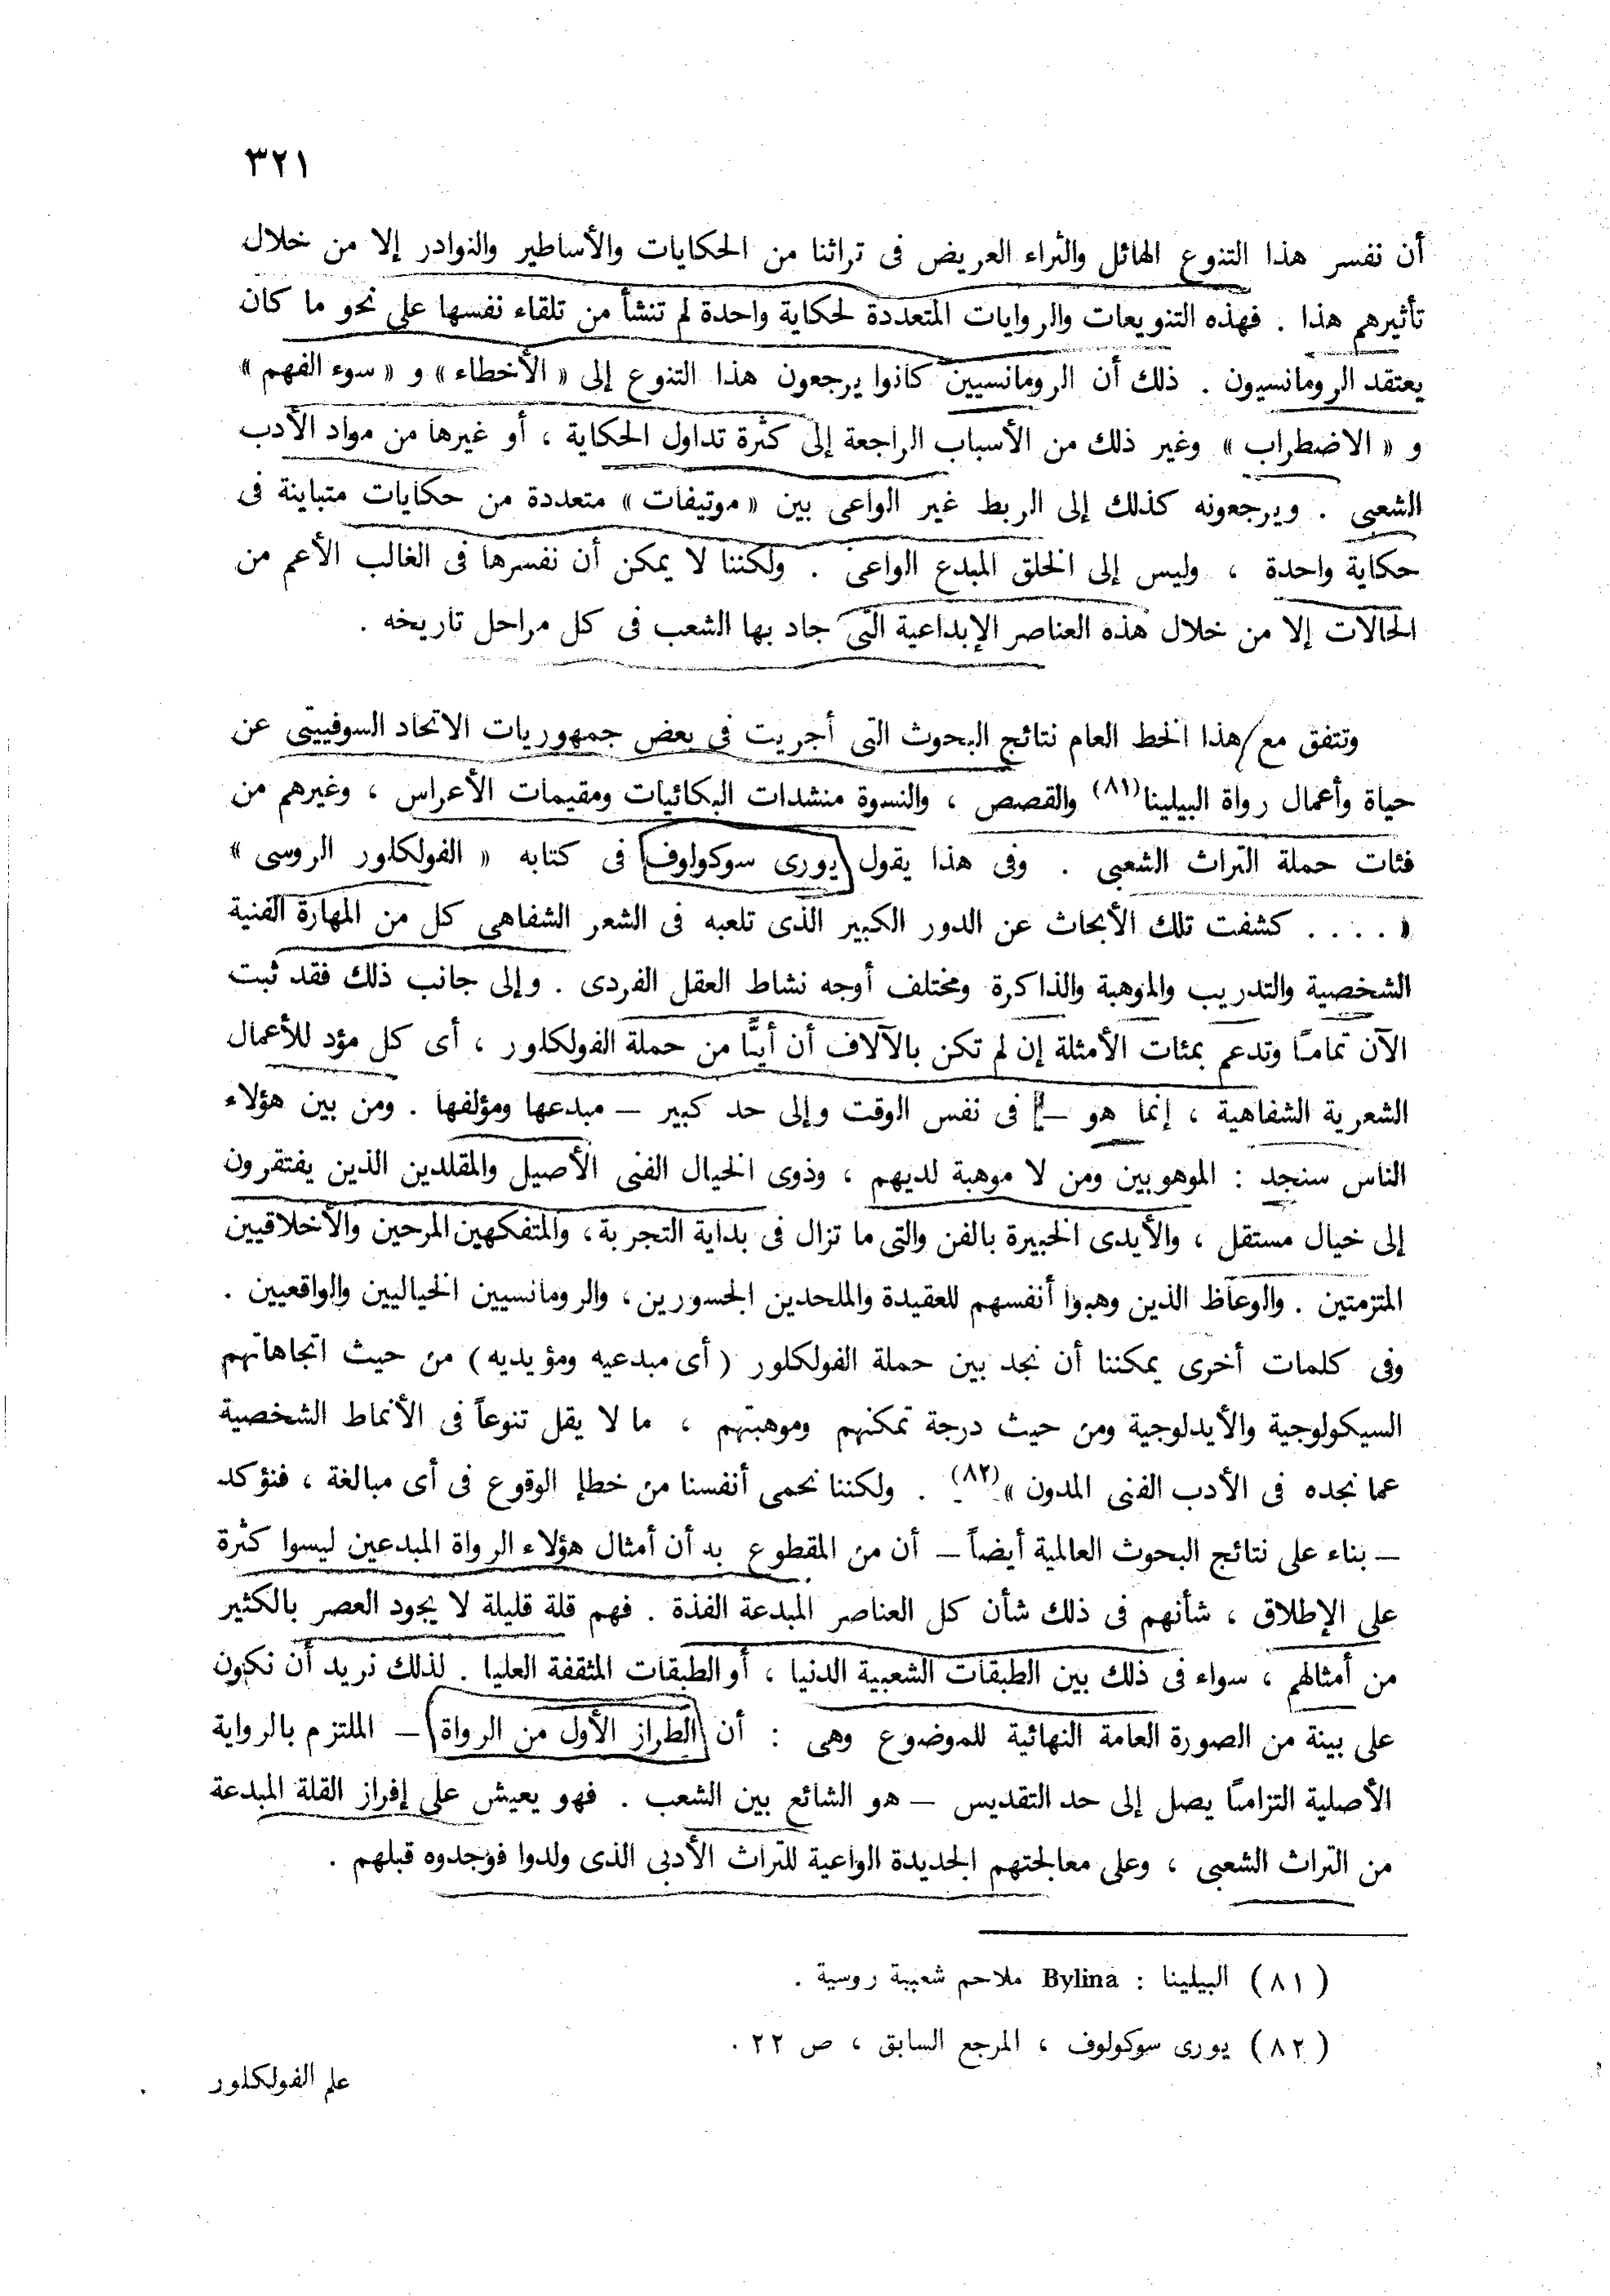 ٣٢١
أن نفسر هذا التنوع الهائل والثراء العريض فى تراثنا من الحكايات والأساطير والنوادر إلا من خلال
تأثيرهم هذا . فهذه التنويعات والروايات المتعددة لحكاية واحدة لم تنشأ من تلقاء نفسها على نحو ما كان
يعتقد الرومانسيون . ذلك أن الرومانسيين كانوا يرجعون هذا التنوع إلى « الأخطاء » و « سوء الفهم »
و « الاضطراب » وغير ذلك من الأسباب الراجعة إلى كثرة تداول الحكاية ، أو غيرها من مواد الأدب
الشعبى . ويرجعونه كذلك إلى الربط غير الواعى بين « موتيفات » متعددة من حكايات متباينة فى
حكاية واحدة ، وليس إلى الخلق المبدع الواعى . ولكننا لا يمكن أن نفسرها فى الغالب الأعم من
الحالات إلا من خلال هذه العناصر الإبداعية التى جاد بها الشعب فى كل مراحل تاريخه .
وتتفق مع هذا الخط العام نتائج البحوث التى أجريت فى بعض جمهوريات الاتحاد السوفييتى عن
حياة وأعمال رواة البيلينا (٨١) والقصص ، والنسوة منشدات البكائيات ومقيمات الأعراس ، وغيرهم من
فئات حملة التراث الشعبى . وفى هذا يقول يورى سوكولوف فى كتابه « الفولكلور الروسى »
« .... كشفت تلك الأبحاث عن الدور الكبير الذى تلعبه فى الشعر الشفاهى كل من المهارة الفنية
الشخصية والتدريب والموهبة والذاكرة ومختلف أوجه نشاط العقل الفردى . وإلى جانب ذلك فقد ثبت
الآن تمامًا وتدعم بمئات الأمثلة إن لم تكن بالآلاف أن أيًّا من حملة الفولكلور ، أى كل مؤد للأعمال
الشعرية الشفاهية ، إنما هو – فى نفس الوقت وإلى حد كبير – مبدعها ومؤلفها . ومن بين هؤلاء
الناس سنجد : الموهوبين ومن لا موهبة لديهم ، وذوى الخيال الفنى الأصيل والمقلدين الذين يفتقرون
إلى خيال مستقل ، والأيدى الخبيرة بالفن والتى ما تزال فى بداية التجربة ، والمتفكهين المرحين والأخلاقيين
المتزمتين . والوعاظ الذين وهبوا أنفسهم للعقيدة والملحدين الجسورين ، والرومانسيين الخياليين والواقعيين .
وفى كلمات أخرى يمكننا أن نجد بين حملة الفولكلور ( أى مبدعيه ومؤيديه ) من حيث اتجاهاتهم
السيكولوجية والأيدلوجية ومن حيث درجة تمكنهم وموهبتهم ، ما لا يقل تنوعاً فى الأنماط الشخصية
عما نجده فى الأدب الفنى المدون » (٨٢) . ولكننا نحمى أنفسنا من خطإ الوقوع فى أى مبالغة ، فنؤكد
– بناء على نتائج البحوث العالمية أيضاً – أن من المقطوع به أن أمثال هؤلاء الرواة المبدعين ليسوا كثرة
على الإطلاق ، شأنهم فى ذلك شأن كل العناصر المبدعة الفذة . فهم قلة قليلة لا يجود العصر بالكثير
من أمثالهم ، سواء فى ذلك بين الطبقات الشعبية الدنيا ، أو الطبقات المثقفة العليا . لذلك نريد أن نكون
على بينة من الصورة العامة النهائية للموضوع وهى : أن الطراز الأول من الرواة – الملتزم بالرواية
الأصلية التزامًا يصل إلى حد التقديس – هو الشائع بين الشعب . فهو يعيش على إفراز القلة المبدعة
من التراث الشعبى ، وعلى معالجتهم الجديدة الواعية للتراث الأدبى الذى ولدوا فوجدوه قبلهم .
( ٨١ ) البيلينا : Bylina ملاحم شعبية روسية .
( ٨٢ ) يورى سوكولوف ، المرجع السابق ، ص ٢٢ .
علم الفولكلور